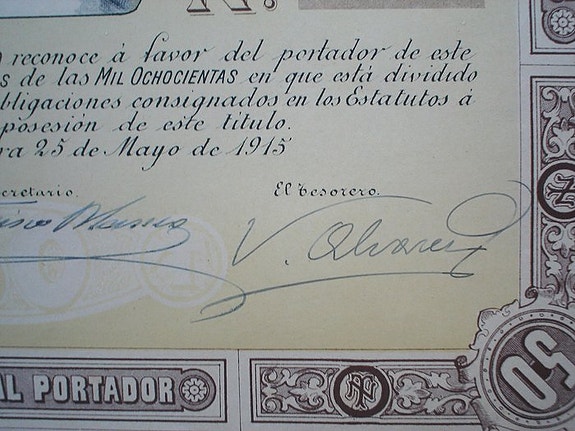 N.
reconoce á favor del portador de este
s de las MIL OCHOCIENTAS en que está dividido
bligaciones consignados en los Estatutos á
posesión de este título.
ra 25 de Mayo de 1915
ecretario. El Tesorero.
V. Alvarez
AL PORTADOR
50